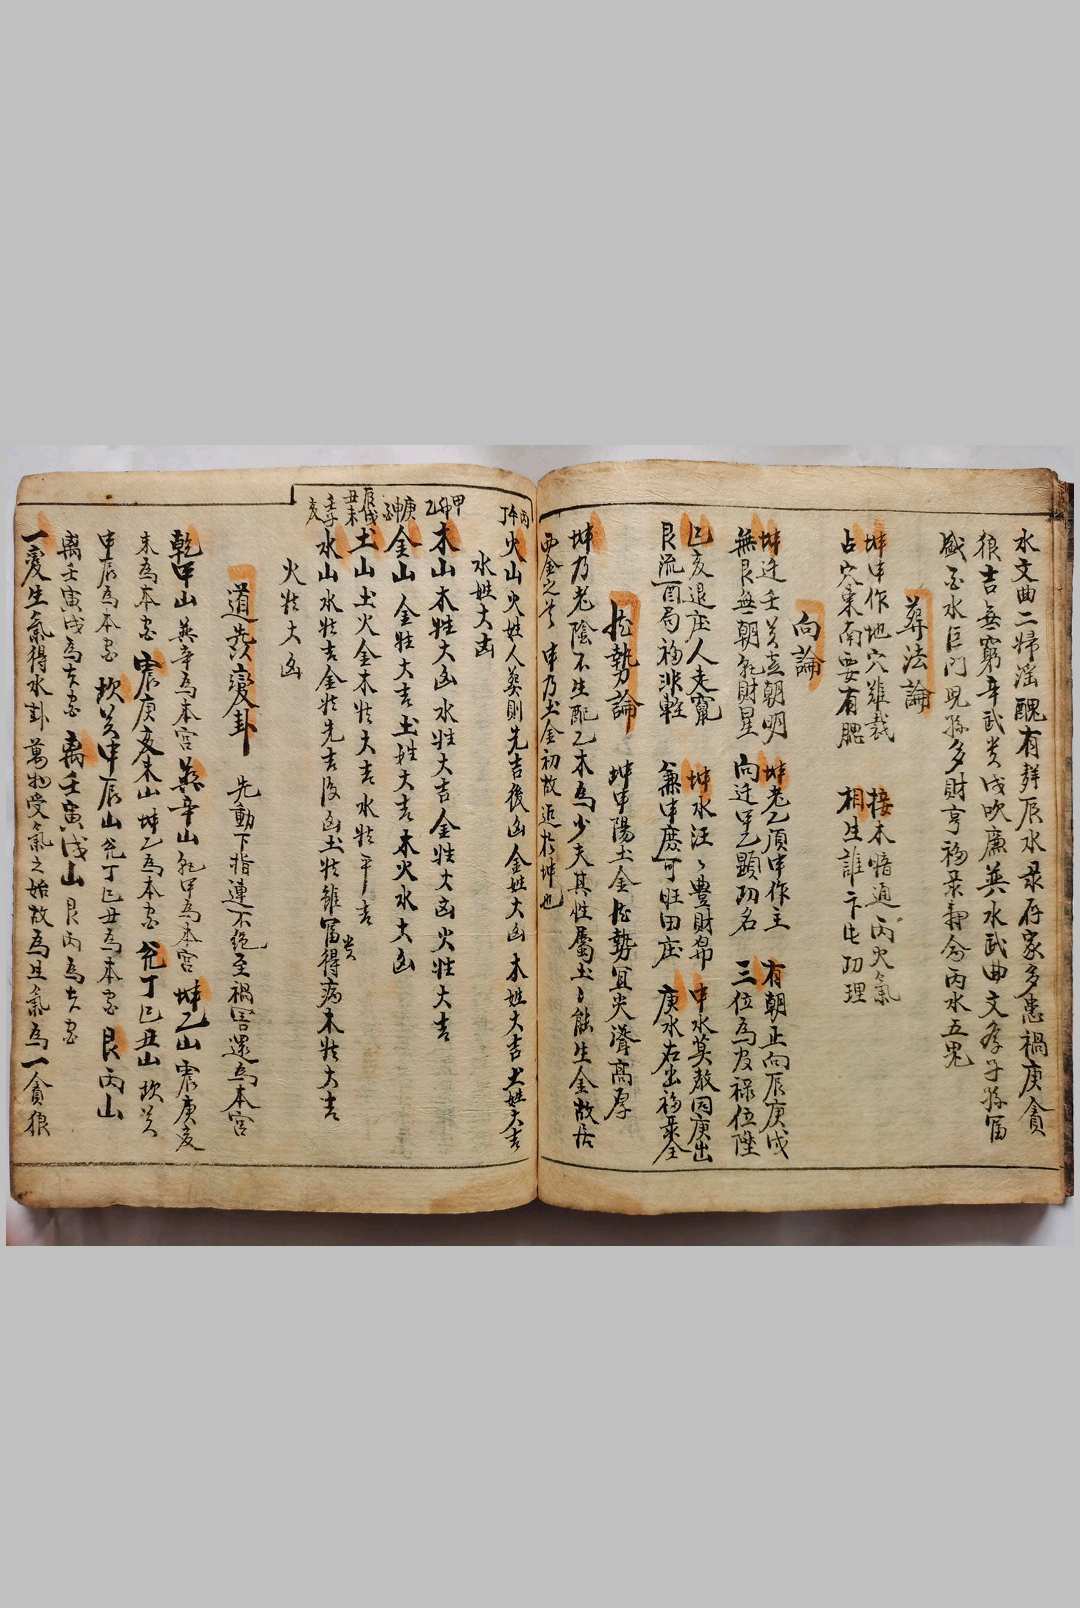 水文曲二婦淫醜有群辰水彔存家多患禍庚貪
狼吉無窮辛武癸戌吹廉巽水武曲文孝子孫富
盛 水巨門見孫多財亨福彔 丙水五鬼
葬法論
坤申作地穴難裁 接木暗通丙火氣
占穴東南要有腮 相生誰 功理
向論
坤 壬 直朝明 坤老乙 申作主 有朝正向辰庚戌
無艮無朝 財星 向 甲乙顯功名 三位為 祿位陞
亥退 人走竄 坤水汪〻豐財帛 申水莫教因庚出
艮流酉局福非輕 兼申 可旺田庄 庚水右出福彔全
勢論
坤申陽土金 勢宜尖 高厚
坤乃老陰不生配乙木為少夫其性屬土〻能生金故居
西金之 申乃土金初故近於坤也
丙午丁
火山火姓人葬則先吉後凶金姓大凶木姓大吉土姓大吉
水姓大凶
甲卯乙
木山木姓大凶水姓大吉金姓大凶火姓大吉
庚申
金山金姓大吉土姓大吉木火水大凶
辰戌丑未
土山土火金木姓大吉水姓平吉
壬子亥
水山水姓吉金姓先吉後凶土姓雖富貴得病木姓大吉
火姓大凶
變卦 先動下指連不絶至禍害還為本宮
乾甲山巽辛為本宮巽辛山乾甲為本宮坤乙山震庚亥
未為本宮震庚亥未山坤乙為本宮兌丁巳丑山坎癸
申辰為本宮坎癸申辰山兌丁巳丑為本宮艮丙山
离壬寅戌為本宮离壬寅戌山艮丙為本宮
一變生氣得水卦萬物受氣之始故為生氣為一貪狼